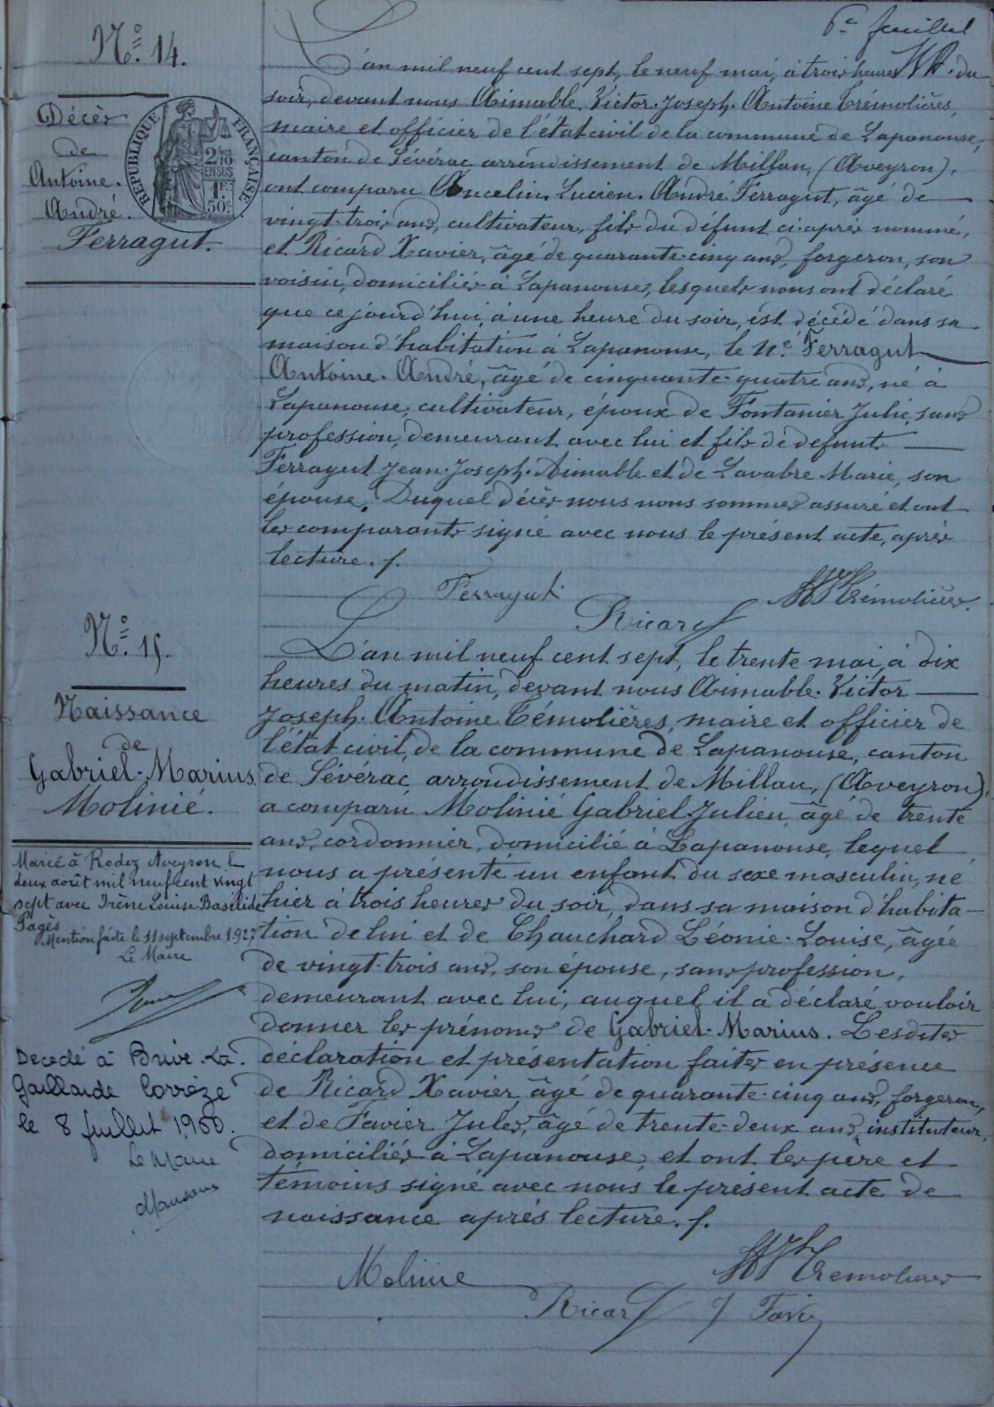 6e feuillet
N° 14.
Décès
de
Antoine.
André.
Ferragut.
RÉPUBLIQUE FRANÇAISE
2/10
EN SUS
1 Fr
50c
L'an mil neuf cent sept, le neuf mai, à trois heures du
soir, devant nous Aimable. Victor. Joseph. Antoine Trémolières,
maire et officier de l'état civil de la commune de Lapanouse,
canton de Sévérac arrondissement de Millau, (Aveyron),
ont comparu Ancelin. Lucien. André Ferragut, âgé de
vingt-trois ans, cultivateur, fils du défunt ci-après nommé,
et Ricard Xavier, âgé de quarante-cinq ans, forgeron, son
voisin, domiciliés à Lapanouse, lesquels nous ont déclaré
que cejourd'hui, à une heure du soir, est décédé dans sa
maison d'habitation a Lapanouse, le né Ferragut
Antoine. André, âgé de cinquante-quatre ans, né à
Lapanouse, cultivateur, époux de Fontanier Julie, sans
profession, demeurant avec lui et fils de defunts
Ferragut Jean-Joseph-Aimable et de Lavabre Marie, son
épouse. Duquel décès nous nous sommes assuré et ont
les comparants signé avec nous le présent acte, après
lecture. /.
Ferragut
Trémolières
Ricard
N° 15.
Naissance
de
Gabriel-Marius.
Molinié.
Marié à Rodez Aveyron le
deux août mil neuf cent vingt
sept avec Irène Louise Basilide
Pagès
Mention faite le 11 septembre 1927
Le Maire
Decedé à Brive-la-
Gaillarde Corrèze
le 8 Juillet 1950.
Le Maire
L'an mil neuf cent sept, le trente mai, à dix
heures du matin, devant nous Aimable. Victor
Joseph. Antoine Témolières, maire et officier de
l'état civil, de la commune de Lapanouse, canton
de Sévérac, arrondissement de Millau, (Aveyron),
a comparu Molinié Gabriel-Julien, âgé de trente
ans, cordonnier, domicilié à Lapanouse, lequel
nous a présenté un enfant du sexe masculin, né
hier à trois heures du soir, dans sa maison d'habita-
tion de lui et de Chauchard Léonie-Louise, âgée
de vingt-trois ans, son épouse, sans profession,
demeurant avec lui, auquel il a déclaré vouloir
donner les prénoms de Gabriel-Marius. Lesdites
déclaration et présentation faites en présence
de Ricard Xavier, âgé de quarante-cinq ans, forgeron,
et de Favier Jules, âgé de trente-deux ans, instituteur,
domiciliés à Lapanouse, et ont les père et
témoins signé avec nous le présent acte de
naissance après lecture. /.
Molinié
Tremolières
Ricard
J Favier